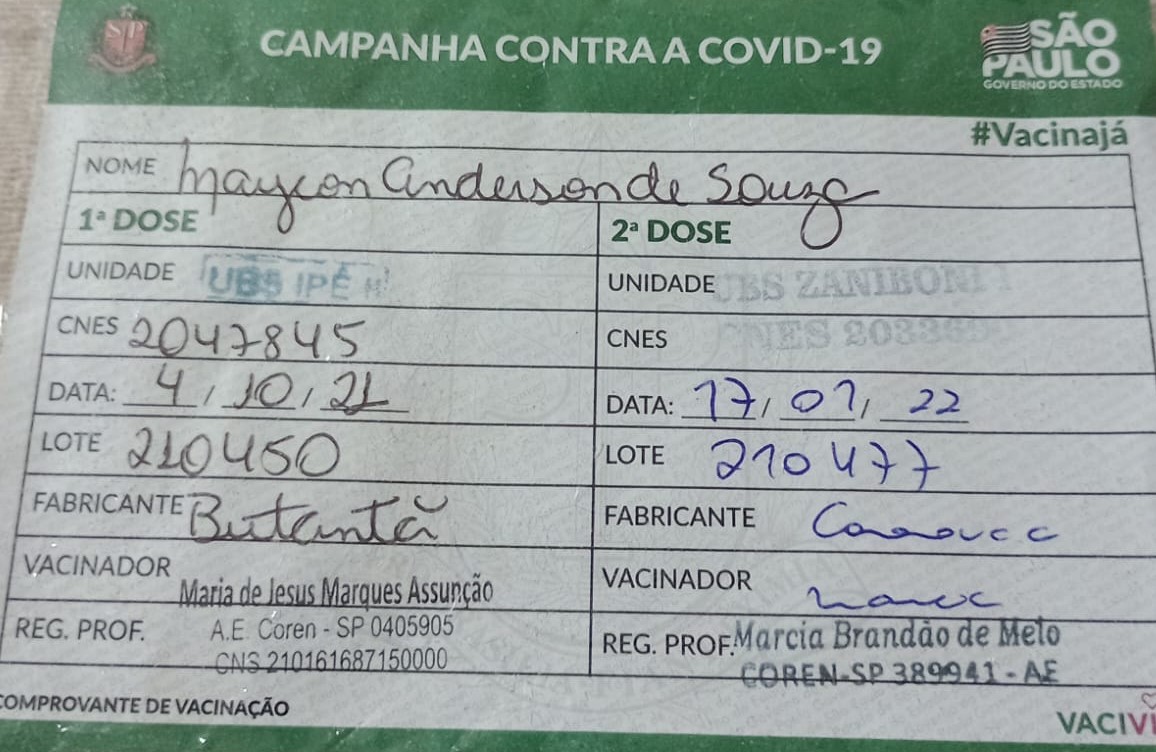 SP
CAMPANHA CONTRA A COVID-19
SÃO
PAULO
GOVERNO DO ESTADO
#Vacinajá
NOME Maycon Anderson de Souza
1ª DOSE
UNIDADE UBS IPÊ
CNES 2047845
DATA: 4 / 10 / 21
LOTE 210450
FABRICANTE Butantã
VACINADOR
Maria de Jesus Marques Assunção
REG. PROF. A.E. Coren - SP 0405905
CNS 210161687150000
2ª DOSE
UNIDADE UBS ZANIBONI
CNES CNES
DATA: 17 / 01 / 22
LOTE 210477
FABRICANTE
VACINADOR
REG. PROF. Marcia Brandão de Melo
COREN-SP 389941 - AE
COMPROVANTE DE VACINAÇÃO
VACIVI